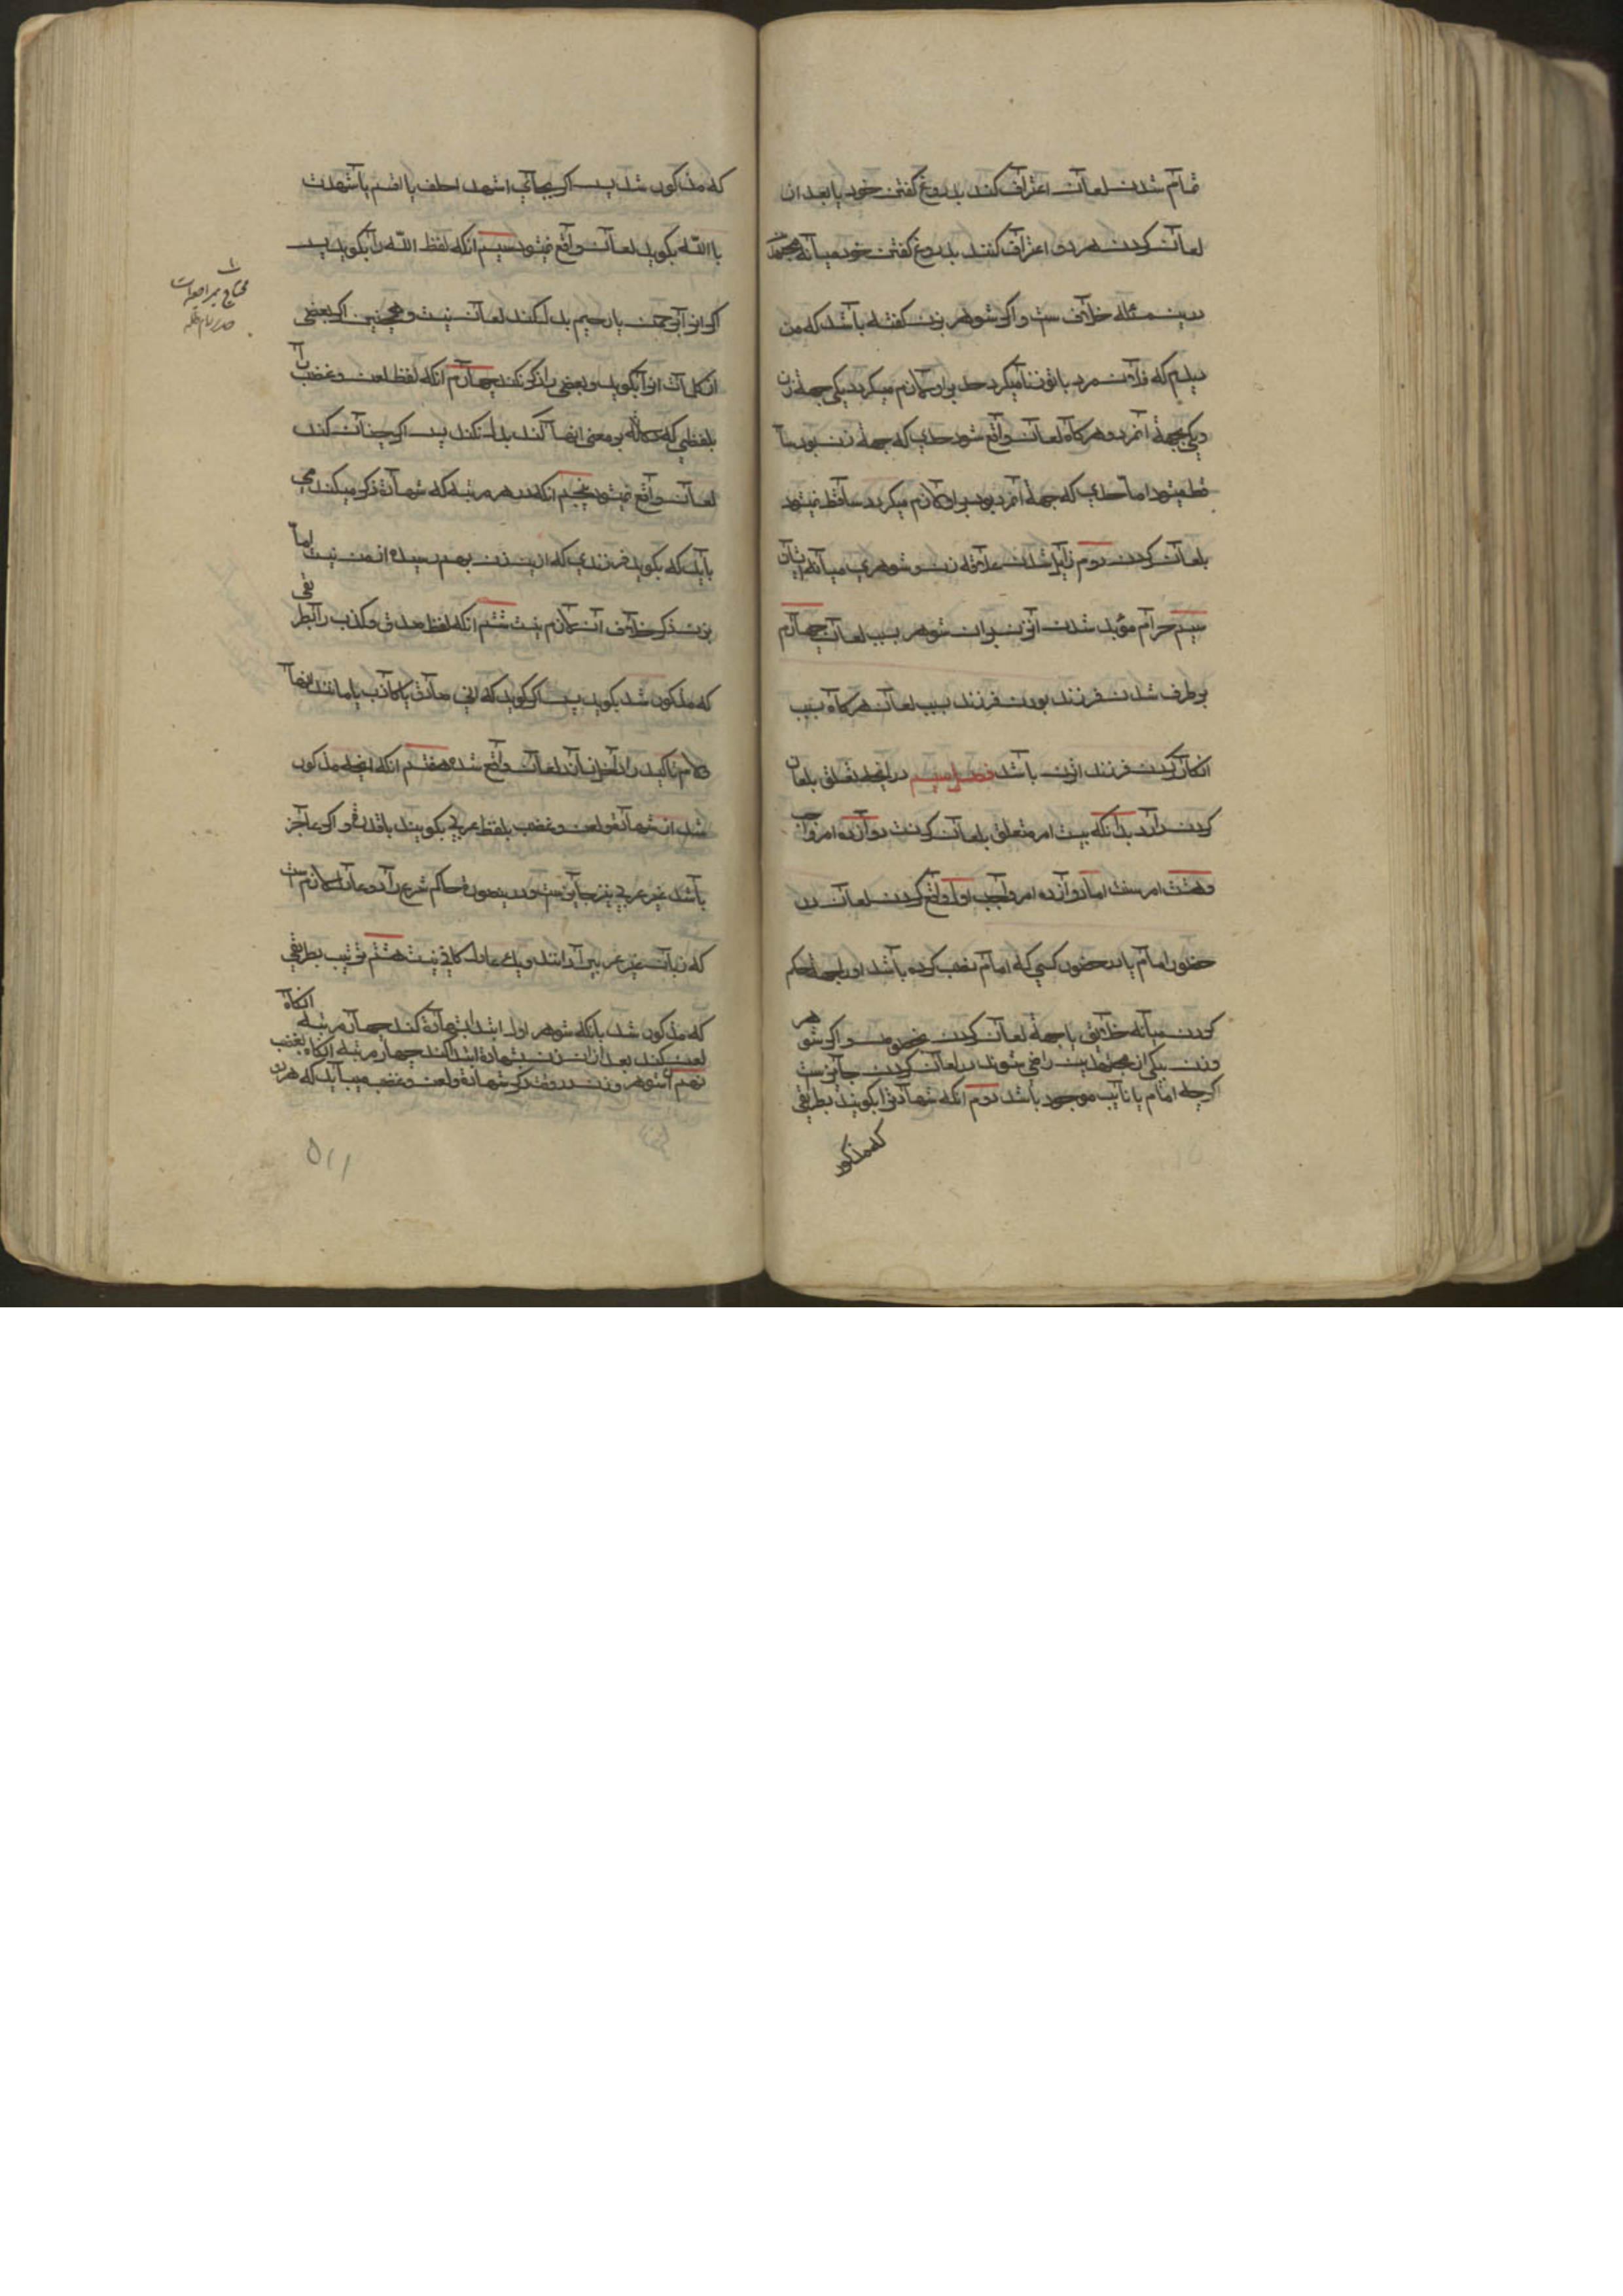 تمام شدن لعان اعتراف کند بدروغ گفتن خود یا بعد از
لعان کردن هر دو اعتراف کنند بدروغ گفتن خود میانه مجتهد
درین مسئله خلاف ست و اکر شوهر بزن کفته باشد که من
دیدم که فلان مرد با تو زنا میکرد حد بر او لازم میکردد یکی جهة زن
و یکی جهة آنمرد و هرکاه لعان واقع شود حدی که جهة زن بود سا
قط میشود اما حدی که جهة آنمرد بود بر او لازم میکردد ساقط نمیشود
بلعان کردن دوم زایل شدن علاقه زن و شوهری میانه ایشان
سیم حرام مؤبد شدن آنزن بر ان شوهر بسبب لعان چهارم
بر طرف شدن فرزند بودن فرزند بسبب لعان هرکاه بسبب
انکار کردن فرزند انزن باشد فصل سیم در انچه تعلق بلعان
کردن دارد بدآنکه بیست امر متعلق بلعان کردنست دوازده امر واجب
و هشت امر سنت اما دوازده امر واجب اول واقع کردن لعان در
حضور امام یا در حضور کسی که امام نصب کرده باشد او را بجهة حکم
کردن میانه خلایق یا جهة لعان کردن مخصوص و اکر شوهر
و زن بیکی از مجتهدین راضی شوند در لعان کردن جایز ست
اکرچه امام یا نایب موجود باشد دوم انکه شهادتی را بکویند بطریقی
که مذکور
که مذکور شد پس اکر بجای اشهد احلف یا اقسم یا شهدت
با الله بکوید لعان واقع نمیشود سیم انکه لفظ الله را بکوید پس
اکر انرا بر حمن یا رحیم بدل کند لعان نیست و همچنین اکر بعضی
از کلمات انرا بکوید و بعضی را ذکر نکند چهارم انکه لفظ لعن و غضب را
بلفظی که دلاله بر معنی اینها کند بدل نکند پس اکر چنان کند
لعان واقع نمیشود پنجم انکه در هر مرتبه که شهادة ذکر میکند می
باید که بکوید فرزندی که ازین زن بهم رسیده از من نیست اما
بزن ذکر خلاف ان لازم نیست ششم انکه لفظ صدق و کذب را بطریقی
که مذکور شد بکوید پس اکر کوید که انی صادق یا کاذب یا مانند اینها
و لام تاکید را در اخر نیارد لعان واقع نشده هفتم انکه انچه مذکور
شد از شهادة و لعن و غضب بلفظ عربی بکویند با قدرة و اکر عاجز
باشد غیر عربی نیز جایز ست و درینصورة حاکم شرع را دو عادل لازم ست
که زبان غیر عربی را دانند و یک عادل کافی نیست هشتم ترتیب بطریقی
که مذکور شد بانکه شوهر اول ابتدا بشهادة کند چهار مرتبه انکاه
لعن کند بعد از ان زن شهادة ادا کند چهار مرتبه انکاه بغضب
نهم انکه شوهر و زن در وقت ذکر شهادة و لعن و غضب میباید که هر دو
محتاج بمراجعه است
۵۱۱